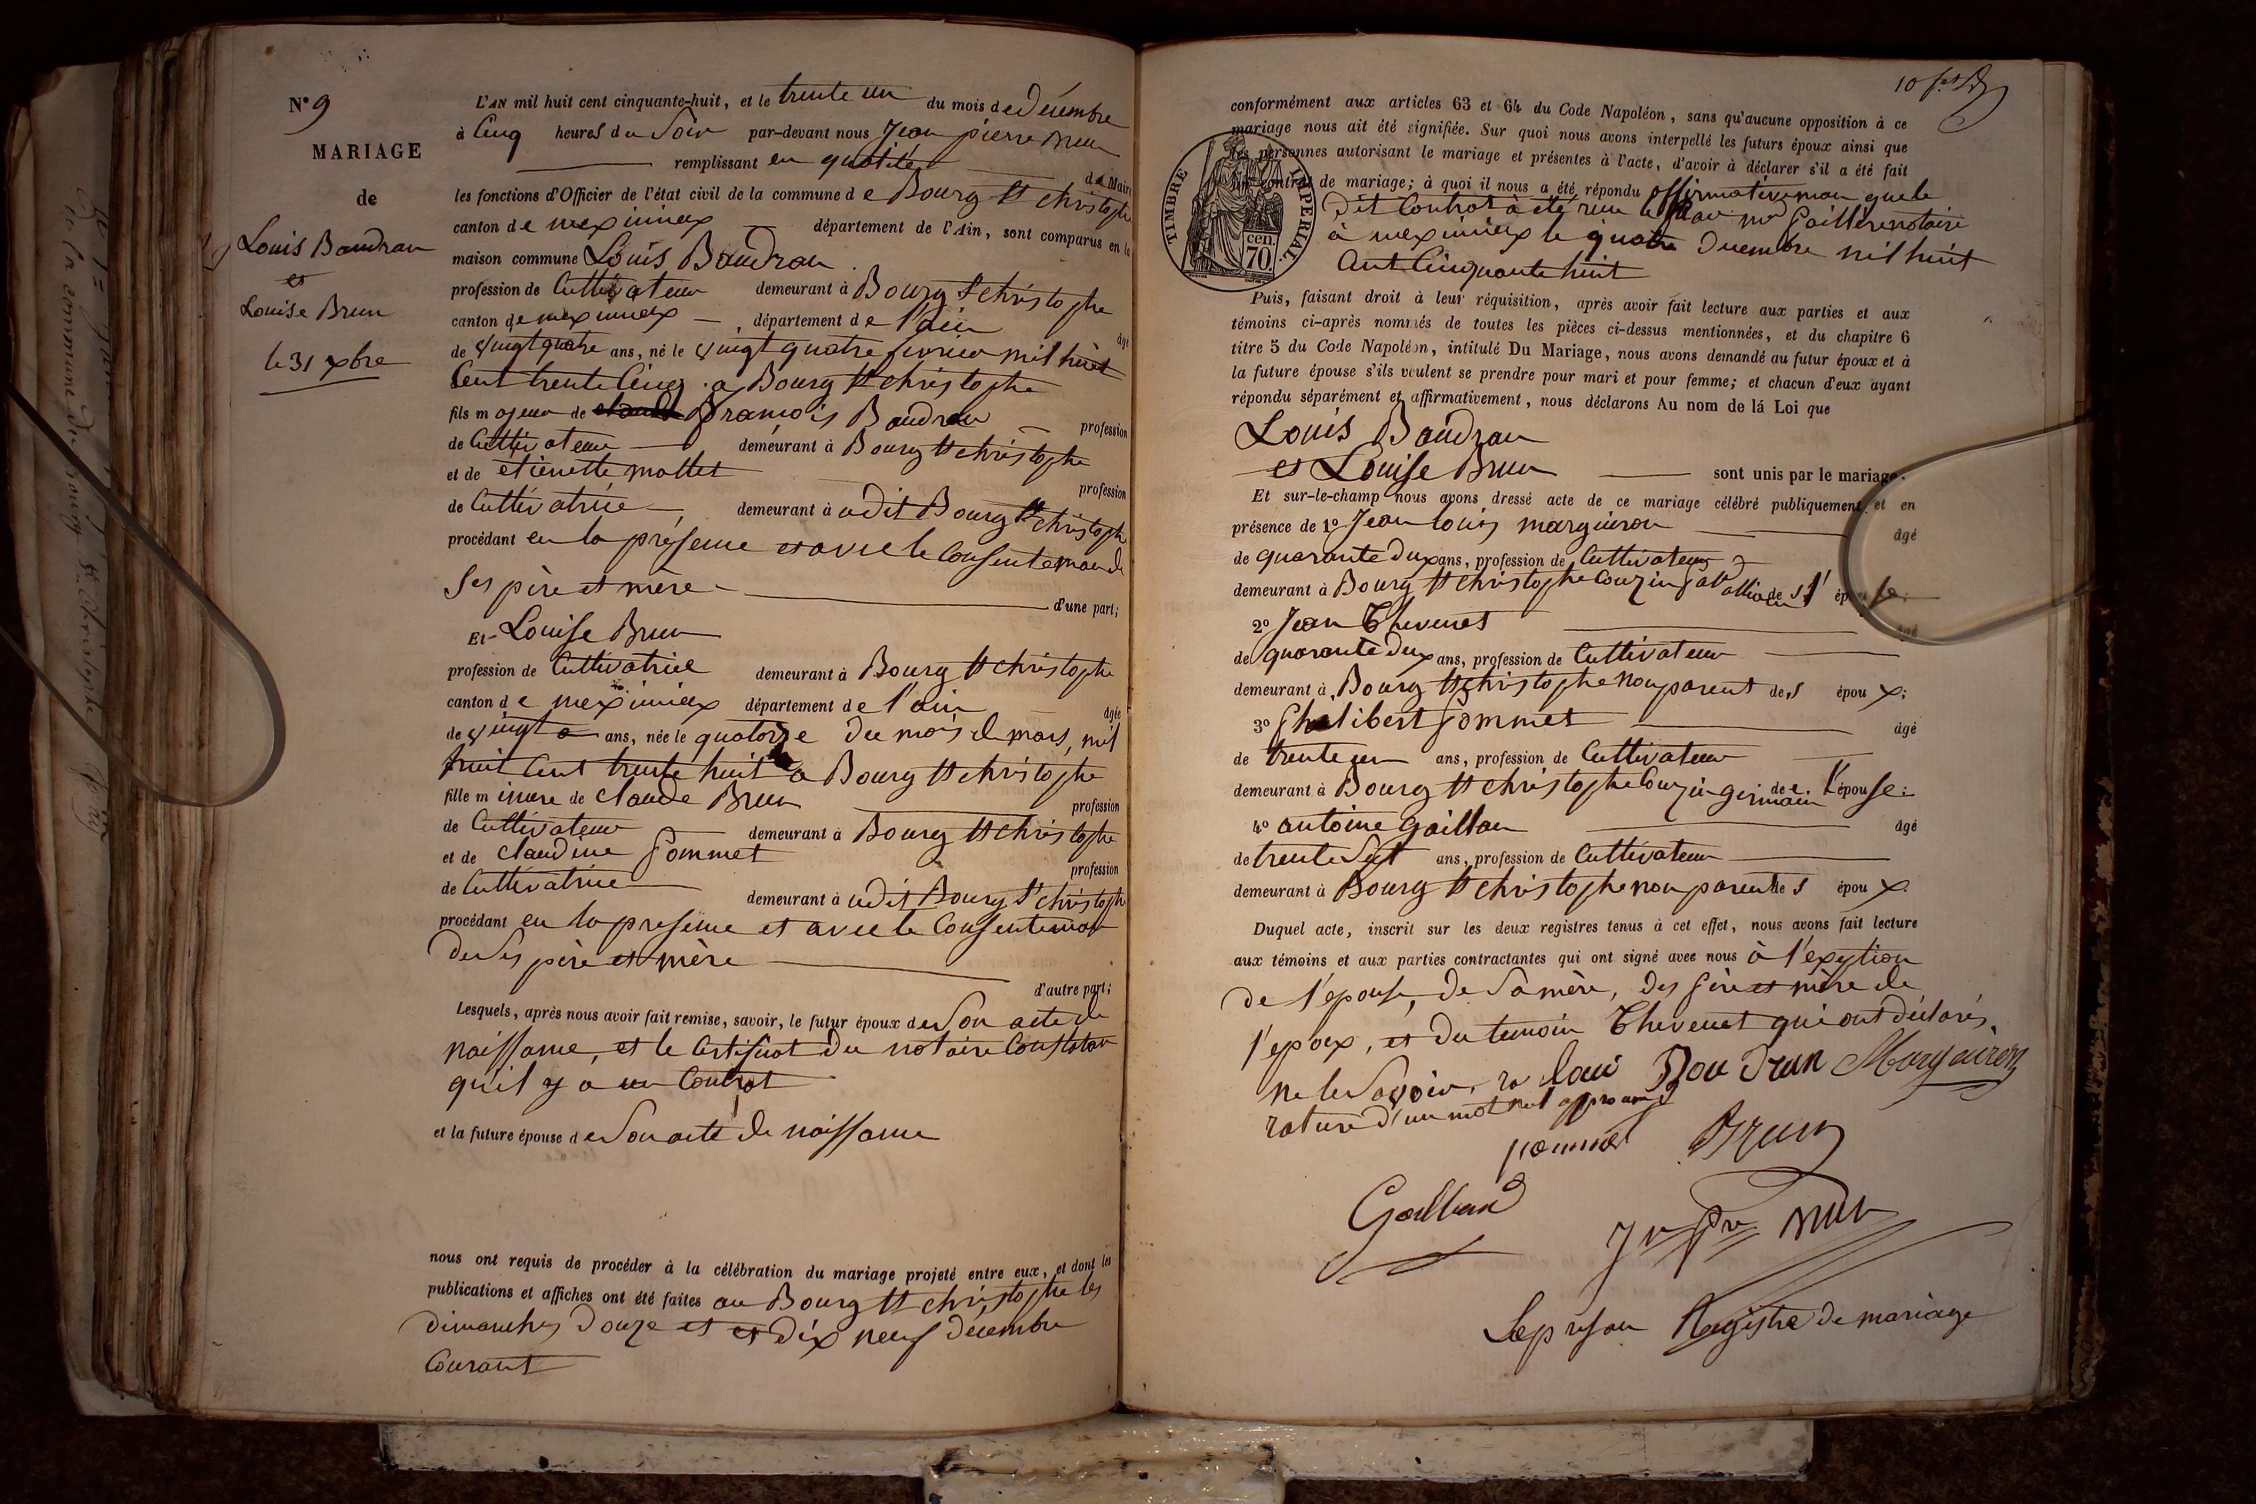 N° 9
MARIAGE
de
Louis Baudran
et
Louise Brun
le 31 xbre
L'AN mil huit cent cinquante-huit, et le trente un du mois de décembre
à Cinq heures du Soir par-devant nous Jean pierre
remplissant en qualité de Maire
les fonctions d'Officier de l'état civil de la commune de Bourg St christophe
canton de meximieux département de l'Ain, sont comparus en la
maison commune Louis Baudran
profession de Cultivateur demeurant à Bourg St christophe
canton de meximieux département de l'ain âgé
de vingt quatre ans, né le vingt quatre fevrier mil huit
Cent trente Cinq a Bourg St christophe
fils majeur de francois Baudran profession
de Cultivateur demeurant à Bourg St christophe
et de etienette mollet profession
de Cultivatrice demeurant à udit Bourg St christophe
procédant en la présence et avec le Consentement de
Ses père et mère d'une part;
Et Louise Brun
profession de Cultivatrice demeurant à Bourg St christophe
canton de meximieux département de l'ain âgée
de vingt ans, née le quatorze du mois de mars, mil
huit Cent trente huit a Bourg St christophe
fille mineure de claude Brun profession
de Cultivateur demeurant à Bourg St christophe
et de claudine pommet profession
de Cultivatrice demeurant à udit Bourg St christophe
procédant en la presence et avec le Consentement
de Ses père et mère d'autre part;
Lesquels, après nous avoir fait remise, savoir, le futur époux de Son acte de
naissance, et le Certificat du notaire Constatan
qu'il y a un Contrat
et la future épouse de Son acte de naissance
nous ont requis de procéder à la célébration du mariage projeté entre eux, et dont les
publications et affiches ont été faites au Bourg St christophe les
dimanches douze et et dix neuf décembre
Courant
conformément aux articles 63 et 64 du Code Napoléon, sans qu'aucune opposition à ce
mariage nous ait été signifiée. Sur quoi nous avons interpellé les futurs époux ainsi que
les personnes autorisant le mariage et présentes à l'acte, d'avoir à déclarer s'il a été fait
un contrat de mariage; à quoi il nous a été répondu affirmativeman que le
dit Contrat à été recu notaire
à meximieux le quatre decembre mil huit
Cent Cinquante huit
TIMBRE IMPERIAL
70 cen.
Puis, faisant droit à leur réquisition, après avoir fait lecture aux parties et aux
témoins ci-après nommés de toutes les pièces ci-dessus mentionnées, et du chapitre 6
titre 5 du Code Napoléon, intitulé Du Mariage, nous avons demandé au futur époux et à
la future épouse s'ils veulent se prendre pour mari et pour femme; et chacun d'eux ayant
répondu séparément et affirmativement, nous déclarons Au nom de la Loi que
Louis Baudran
et Louise Brun sont unis par le mariage.
Et sur-le-champ nous avons dressé acte de ce mariage célébré publiquement et en
présence de 1° Jean louis marguiron âgé
de quarante deux ans, profession de Cultivateur
demeurant à Bourg St christophe Couzin de l' épouse;
2° Jean Thevenet âgé
de quarante deux ans, profession de Cultivateur
demeurant à Bourg St christophe non parent des époux;
3° Philibert pommet âgé
de trente un ans, profession de Cultivateur
demeurant à Bourg St christophe Couzin germain de l'épouse;
4° antoine gaillan âgé
de trente Sept ans, profession de Cultivateur
demeurant à Bourg St christophe non parent des époux
Duquel acte, inscrit sur les deux registres tenus à cet effet, nous avons fait lecture
aux témoins et aux parties contractantes qui ont signé avec nous à l'exeption
de l'epouse, de Sa mère, des père et mère de
l'epoux, et du temoin Thevenet qui ont déclarés
ne le Savoir,
rature d'un mot nul approuvé
loui Boudran Marguiron
pommet Brun
Galland
Le presan Registre de mariage